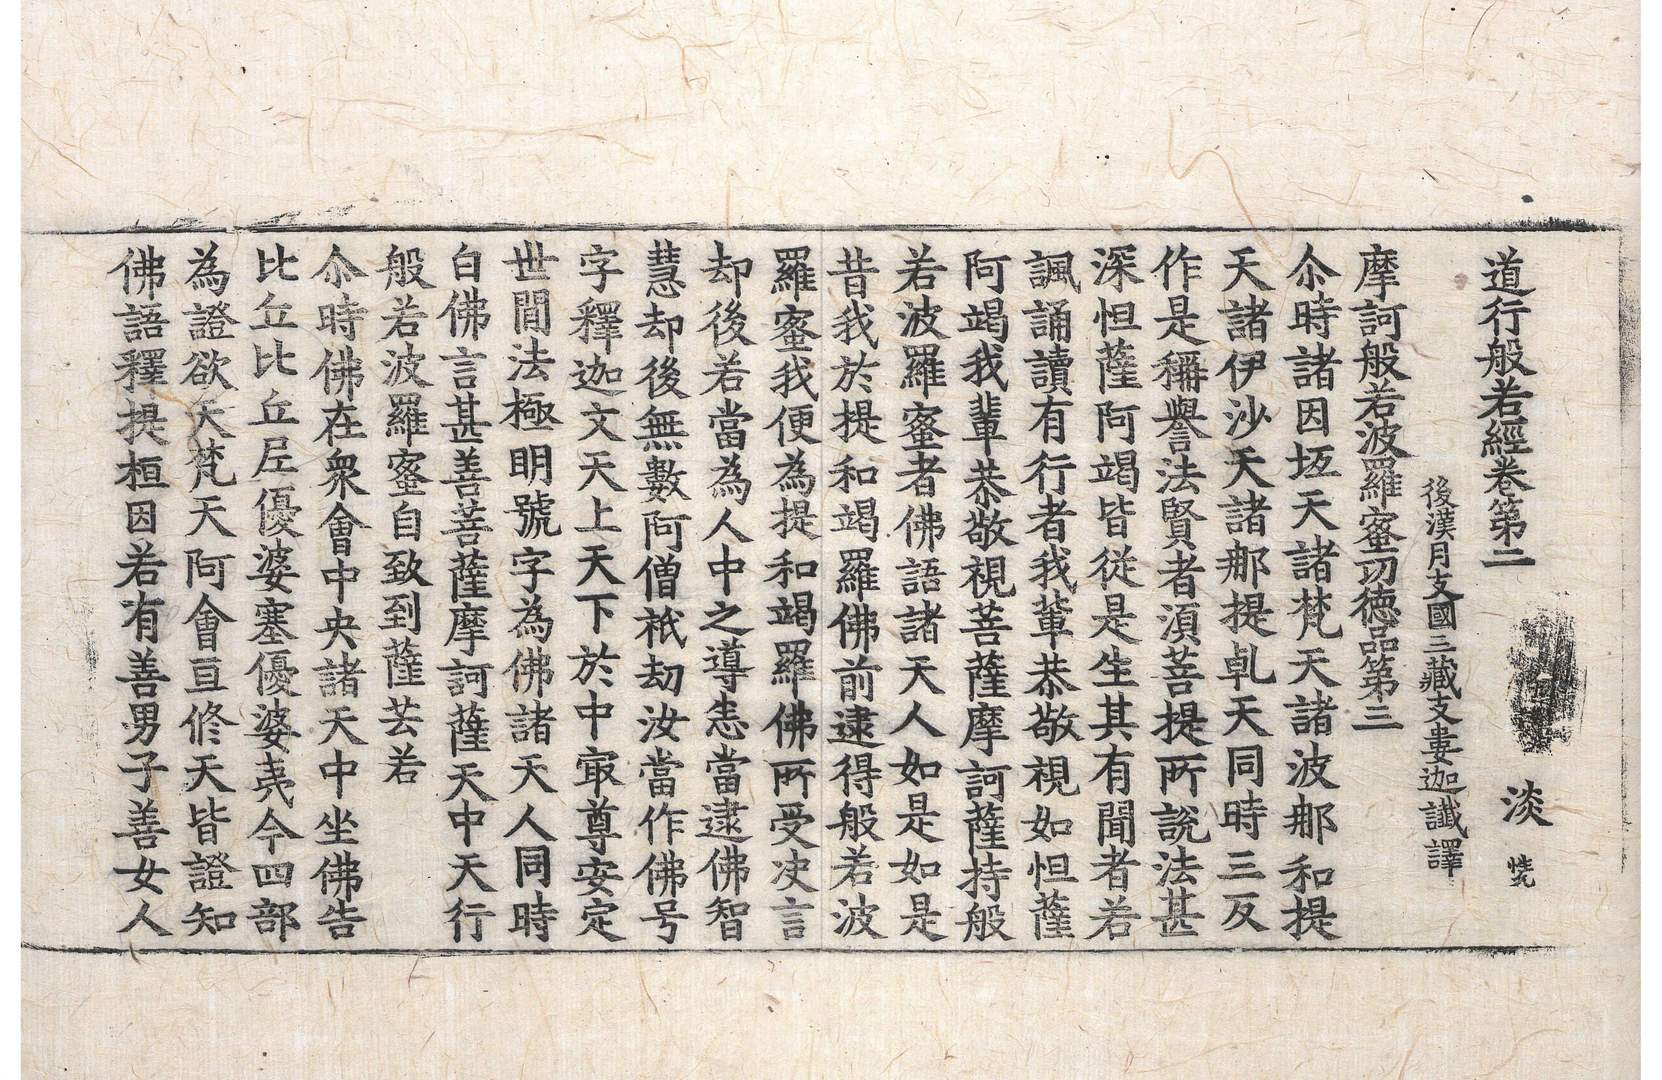 道行般若經卷第二　淡
後漢月支國三藏支婁迦讖譯
摩訶般若波羅蜜㓛德品第三
尒時諸因坻天諸梵天諸波那和提
天諸伊沙天諸那提乹天同時三反
作是稱譽法賢者湏菩提所說法甚
深怛薩阿竭皆從是生其有聞者若
諷誦讀有行者我輩恭敬視如怛薩
阿竭我輩恭敬視菩薩摩訶薩持般
若波羅蜜者佛語諸天人如是如是
昔我於提和竭羅佛前逮得般若波
羅蜜我便為提和竭羅佛所受决言
却後若當為人中之導悉當逮佛智
慧却後無數阿僧祇劫汝當作佛号
字釋迦文天上天下於中㝡尊安定
世間法極明號字為佛諸天人同時
白佛言甚善菩薩摩訶薩天中天行
般若波羅蜜自致到薩芸若
尒時佛在衆會中央諸天中坐佛告
比丘比丘尼優婆塞優婆夷今四部
為證欲天梵天阿會亘修天皆證知
佛語釋提桓因若有善男子善女人